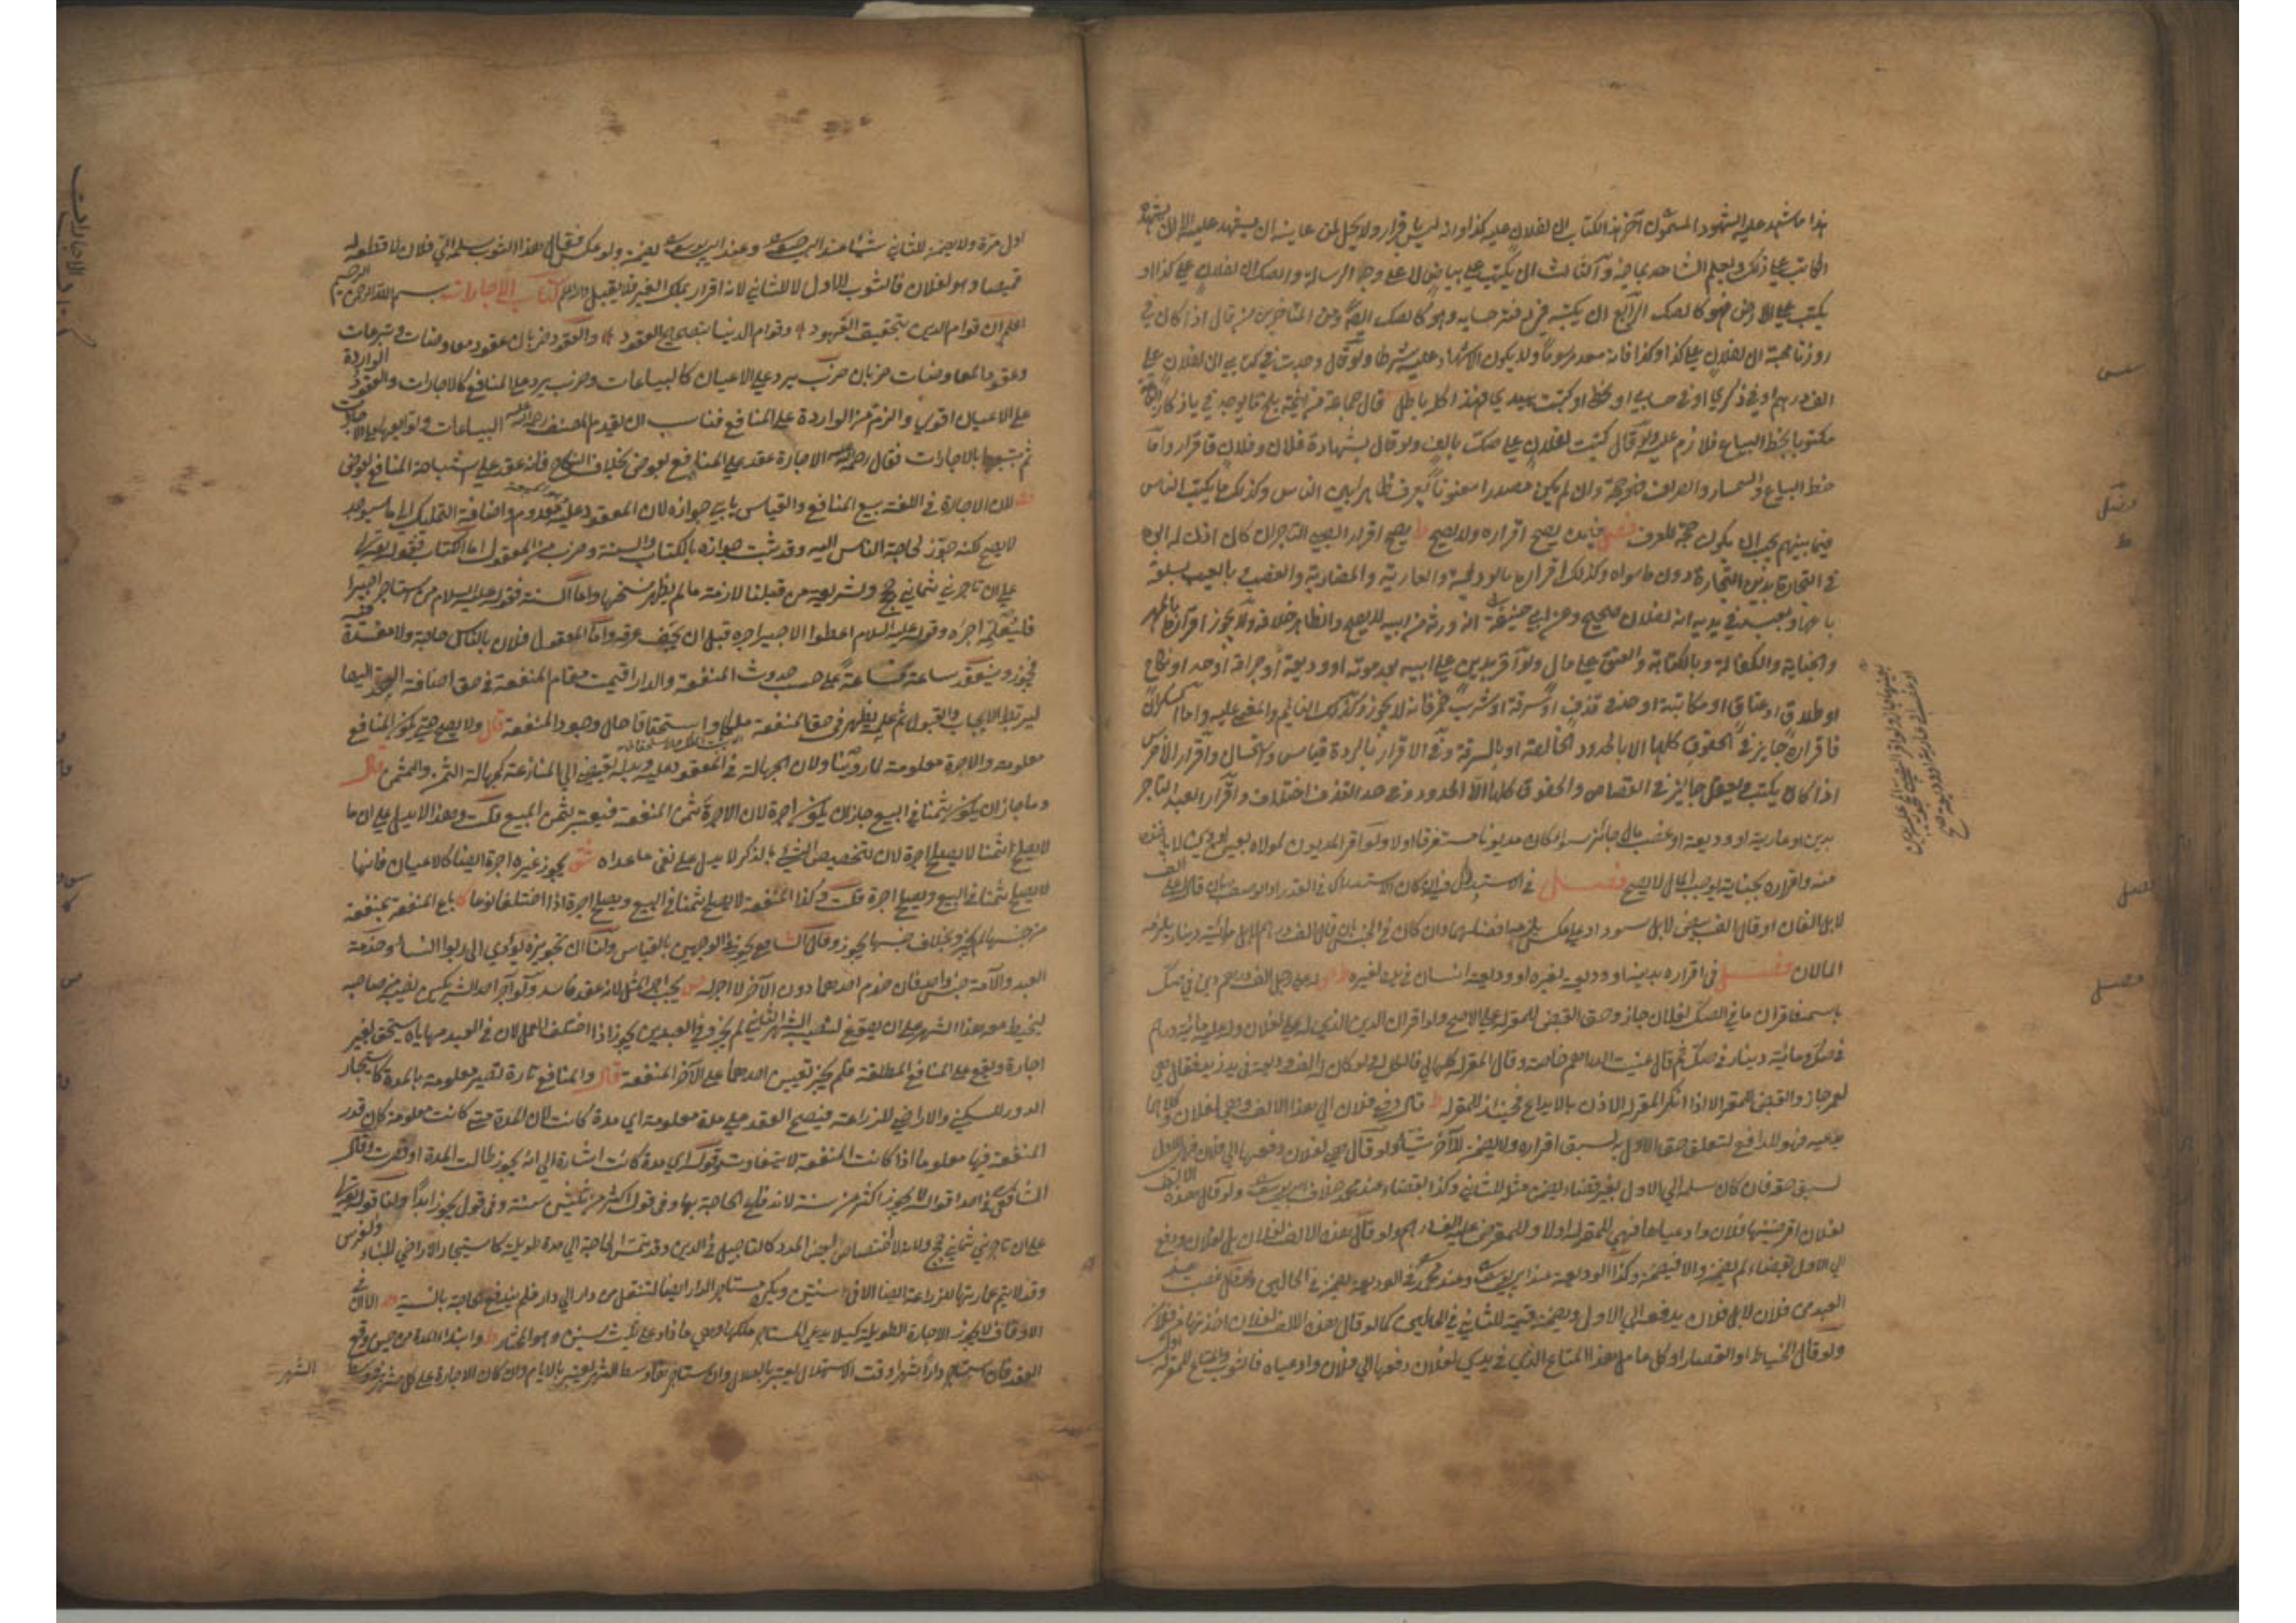 هذا ما شهد عليه الشهود المسمون آخر هذا الكتاب ان لفلان عليه كذا وانه ليس باقرار ولا يحل لمن عاينه ان يشهد عليه الا ان يشهد
الكاتب على ذلك ويعلم الشاهد بما فيه والثالث ان يكتب على بياض لا على وجه الرسالة والصك ان لفلان علي كذا او
يكتب على الارض فهو كالصك الرابع ان يكتبه في دفتر حسابه وهو كالصك ايضا ومن المتاخرين من قال اذا كان في
ان لفلان علي كذا وكذا فانه معد مرسوما ولا يكون الاشهاد عليه شرطا ولو قال وجدت في كتابي ان لفلان علي
الف درهم او في ذكري او في حسابي او بخطي او كتبت بيدي فهذا كله باطل قال جماعة من ائمة بلخ ما يوجد في
مكتوبا بخط البياع فلازم عليه ولو قال كتبت لفلان علي صك بالف ولو قال بشهادة فلان وفلان فاقرار واما
خط البياع والسمسار والصراف فهو حجة وان لم يكن مصدرا معنونا يعرف ظاهرا بين الناس وكذلك ما يكتب الناس
فيما بينهم يجب ان يكون حجة للعرف فصل فيمن يصح اقراره ولا يصح ط يصح اقرار الصبي التاجر ان كان اذن له ابوه
في التجارة بدين التجارة دون ما سواه وكذلك اقراره بالوديعة والعارية والمضاربة والغصب وبالعيب بسلعة
باعها وبعبد في يديه انه لفلان صحيح وعن ابي حنيفة انه ورثه من ابيه لا يصح والظاهر خلافه ولا يجوز اقراره بالمهر
والجناية والكفالة وبالكتابة والعتق على مال ولو اقر بدين على ابيه بعد موته او وديعة او جراحة او حد او نكاح
او طلاق او عتاق او مكاتبة او حد في قذف او سرقة او شرب خمر فانه لا يجوز وكذلك النائم والمغمى عليه واما السكران
فاقراره جايز في الحقوق كلها الا بالحدود الخالصة او بالسرقة وفي الاقرار بالردة قياس واستحسان واقرار الاخرس
اذا كان يكتب ويعقل جايز في القصاص والحقوق كلها الا الحدود وفي حد القذف اختلاف واقرار العبد التاجر
بدين او عارية او وديعة او غصب مال جائز سواء كان مديونا مستغرقا او لا ولو اقر المديون لمولاه
منه واقراره بجناية توجب المال لا يصح فصل في الاستدراك
لا بل الفان او قال الف بيض لا بل سود او على عكس يلزمه افضلهما وان كان في الجنسين قال الف درهم لا بل مائة دينار يلزمه
المالان فصل في اقراره بدينه او وديعته لغيره او وديعة انسان
باسمه فاقر ان ما في الصك لفلان جاز وحق القبض للمقر على الاصح ولو اقر ان الدين الذي له على فلان لفلان وله عليه مائة درهم
في صك ومائة دينار في صك ثم قال عنيت الدراهم خاصة وقال المقر له كلها لي فالكل له
لعمر جاز والقبض للمقر الا اذا انكر المقر له الاذن بالايداع فحينئذ للمقر له ط قال دفع فلان الي هذا الالف وهي لفلان وكلاهما
يدعيه فهو للدافع لتعلق حق الاول به لسبق اقراره ولا يضمن للآخر شيئا ولو قال هي لفلان دفعها الي فلان فهي للاول
لسبق حقه فان كان سلمه الي الاول بغير قضاء يضمن مثله للثاني وكذا القضاء عند محمد خلاف ابي يوسف ولو قال هذه الالف
لفلان اقرضنيها فلان وادعياها فهي للمقر له اولا وللمقرض عليه الف درهم ولو قال هذه الالف لفلان بل لفلان ودفع
الي الاول بقضاء لم يضمن والا فيضمن وكذا الوديعة عند ابي يوسف وعند محمد في الوديعة يضمن في الحالين ولو قال غصبت
العبد من فلان لا بل فلان يدفعه الي الاول ويضمن قيمته للثاني في الحالين كما لو قال هذه الالف لفلان اخذتها من فلان
ولو قال الخياط او القصار او كل عامل هذا المتاع الذي في يدي لفلان دفعها الي فلان وادعياه فالثوب والمتاع للمقر له
فصل
فصل
اول مرة ولا يضمن للثاني شيئا عند ابي حنيفة وعند ابي يوسف يضمن ولو عكس فقال هذا الثوب سلمه الي فلان لاقطعه له
قميصا وهو لفلان فالثوب للاول لا للثاني لانه اقرار بملك الغير فلا يقبل والله اعلم كتاب الاجارات بسم الله الرحمن الرحيم
اعلم ان قوام الدين بتحقيق العهود وقوام الدنيا بتصحيح العقود والعقود ضربان عقود معاوضات وتبرعات
وعقود المعاوضات ضربان ضرب يرد على الاعيان كالبياعات وضرب يرد على المنافع كالاجارات والعقود الواردة
على الاعيان اقوى والزم من الواردة على المنافع فناسب ان يقدم المصنف رحمة الله عليه البياعات وتوابعها على الاجارات
ثم يتبعها بالاجارات فقال رحمه الله الاجارة عقد على المنافع بعوض بخلاف النكاح فانه عقد على استباحة المنافع بعوض
لان الاجارة في اللغة بيع المنافع والقياس يابى جوازه لان المعقود عليه معدوم واضافة التمليك الى ما سيوجد
لا يصح لكنه جوز لحاجة الناس اليه وقد ثبت جوازه بالكتاب والسنة وضرب من المعقول اما الكتاب فقوله تعالى
على ان تاجرني ثماني حجج وشريعة من قبلنا لازمة ما لم يظهر نسخها واما السنة فقوله عليه السلام من استاجر اجيرا
فليعلمه اجره وقوله عليه السلام اعطوا الاجير اجره قبل ان يجف عرقه واما المعقول فلان بالناس حاجة ولا مفسدة فيه
فجوز وينعقد ساعة فساعة على حسب حدوث المنفعة والدار اقيمت مقام المنفعة في حق اضافة العقد اليها
ليرتبط الايجاب والقبول ثم عمله يظهر في حق المنفعة ملكا واستحقاقا حال وجود المنفعة قال ولا يصح حتى يكون المنافع
معلومة والاجرة معلومة لما روينا ولان الجهالة في المعقود عليه وبدله يفضي الي المنازعة كجهالة الثمن والمثمن قال
وما جاز ان يكون ثمنا في البيع جاز ان يكون اجرة لان الاجرة ثمن المنفعة فيعتبر بثمن المبيع قلت وهذا لا يدل على ان ما
لا يصلح ثمنا لا يصلح اجرة لان تخصيص الشيء بالذكر لا يدل على نفي ما عداه شق يجوز غيره اجرة ايضا كالاعيان فانها
لا يصلح ثمنا في البيع ويصلح اجرة قلت وكذا المنفعة لا يصلح ثمنا في البيع ويصلح اجرة اذا اختلف انوعها كا باع المنفعة بمنفعة
من جنسها لم يجز وبخلاف جنسها يجوز وقال الشافعي يجوز في الوجهين بالقياس ولنا ان تجويزه يؤدي الى ربوا النساء وخدمة
العبد والامة جنس واحد فان خدم احدهما دون الآخر لا اجر له يجب اجر المثل لانه عقد فاسد ولو آجر احد الشريكين نصيبه من صاحبه
ليخيط معه هذا الشهر على ان يصوغ نصيبه الشهر الثاني لم يجز وفي العبدين يجوز اذا اختلف العمل لان في العبد مهاياة يستحق بغير
اجارة ويقع على المنافع المطلقة فلم يجز تعيين احدهما على الآخر المنفعة قال والمنافع تارة تصير معلومة بالمدة كاستيجار
الدور للسكنى والاراضي للزراعة فيصح العقد على مدة معلومة اي مدة كانت لان المدة متى كانت معلومة كان قدر
المنفعة فيها معلوما اذا كانت المنفعة لا تتفاوت وقوله اي مدة كانت اشارة الى انه يجوز طالت المدة او قصرت وقال
الشافعي في احد اقواله لا يجوز اكثر من سنة لاندفاع الحاجة بها وفي قول اكثر من ثلثين سنة وفي قول يجوز ابدا ولنا قوله تعالى
على ان تاجرني ثماني حجج ولانه لا اختصاص لبعض المدد كالتاجيل في الدين وقد يمس الحاجة الي مدة طويلة كاستيجار الاراضي للبناء والغرس
وقد لا يتم عمارتها للزراعة ايضا الا في سنتين ويكره مستاجر الدار ايضا التنقل من دار الي دار فلم يندفع الحاجة بالسنة الا ان في
الاوقاف لا يجوز الاجارة الطويلة كيلا يدعي المستاجر ملكها وهي ما زاد على ثلث سنين وهو المختار ط وابتداء المدة من حين وقع
العقد فان استاجر دارا شهرا وقت الاستهلال يعتبر بالهلال وان استاجر في وسط الشهر يعتبر بالايام وان كان الاجارة على كل شهر
الشهر
كتاب الاجارات